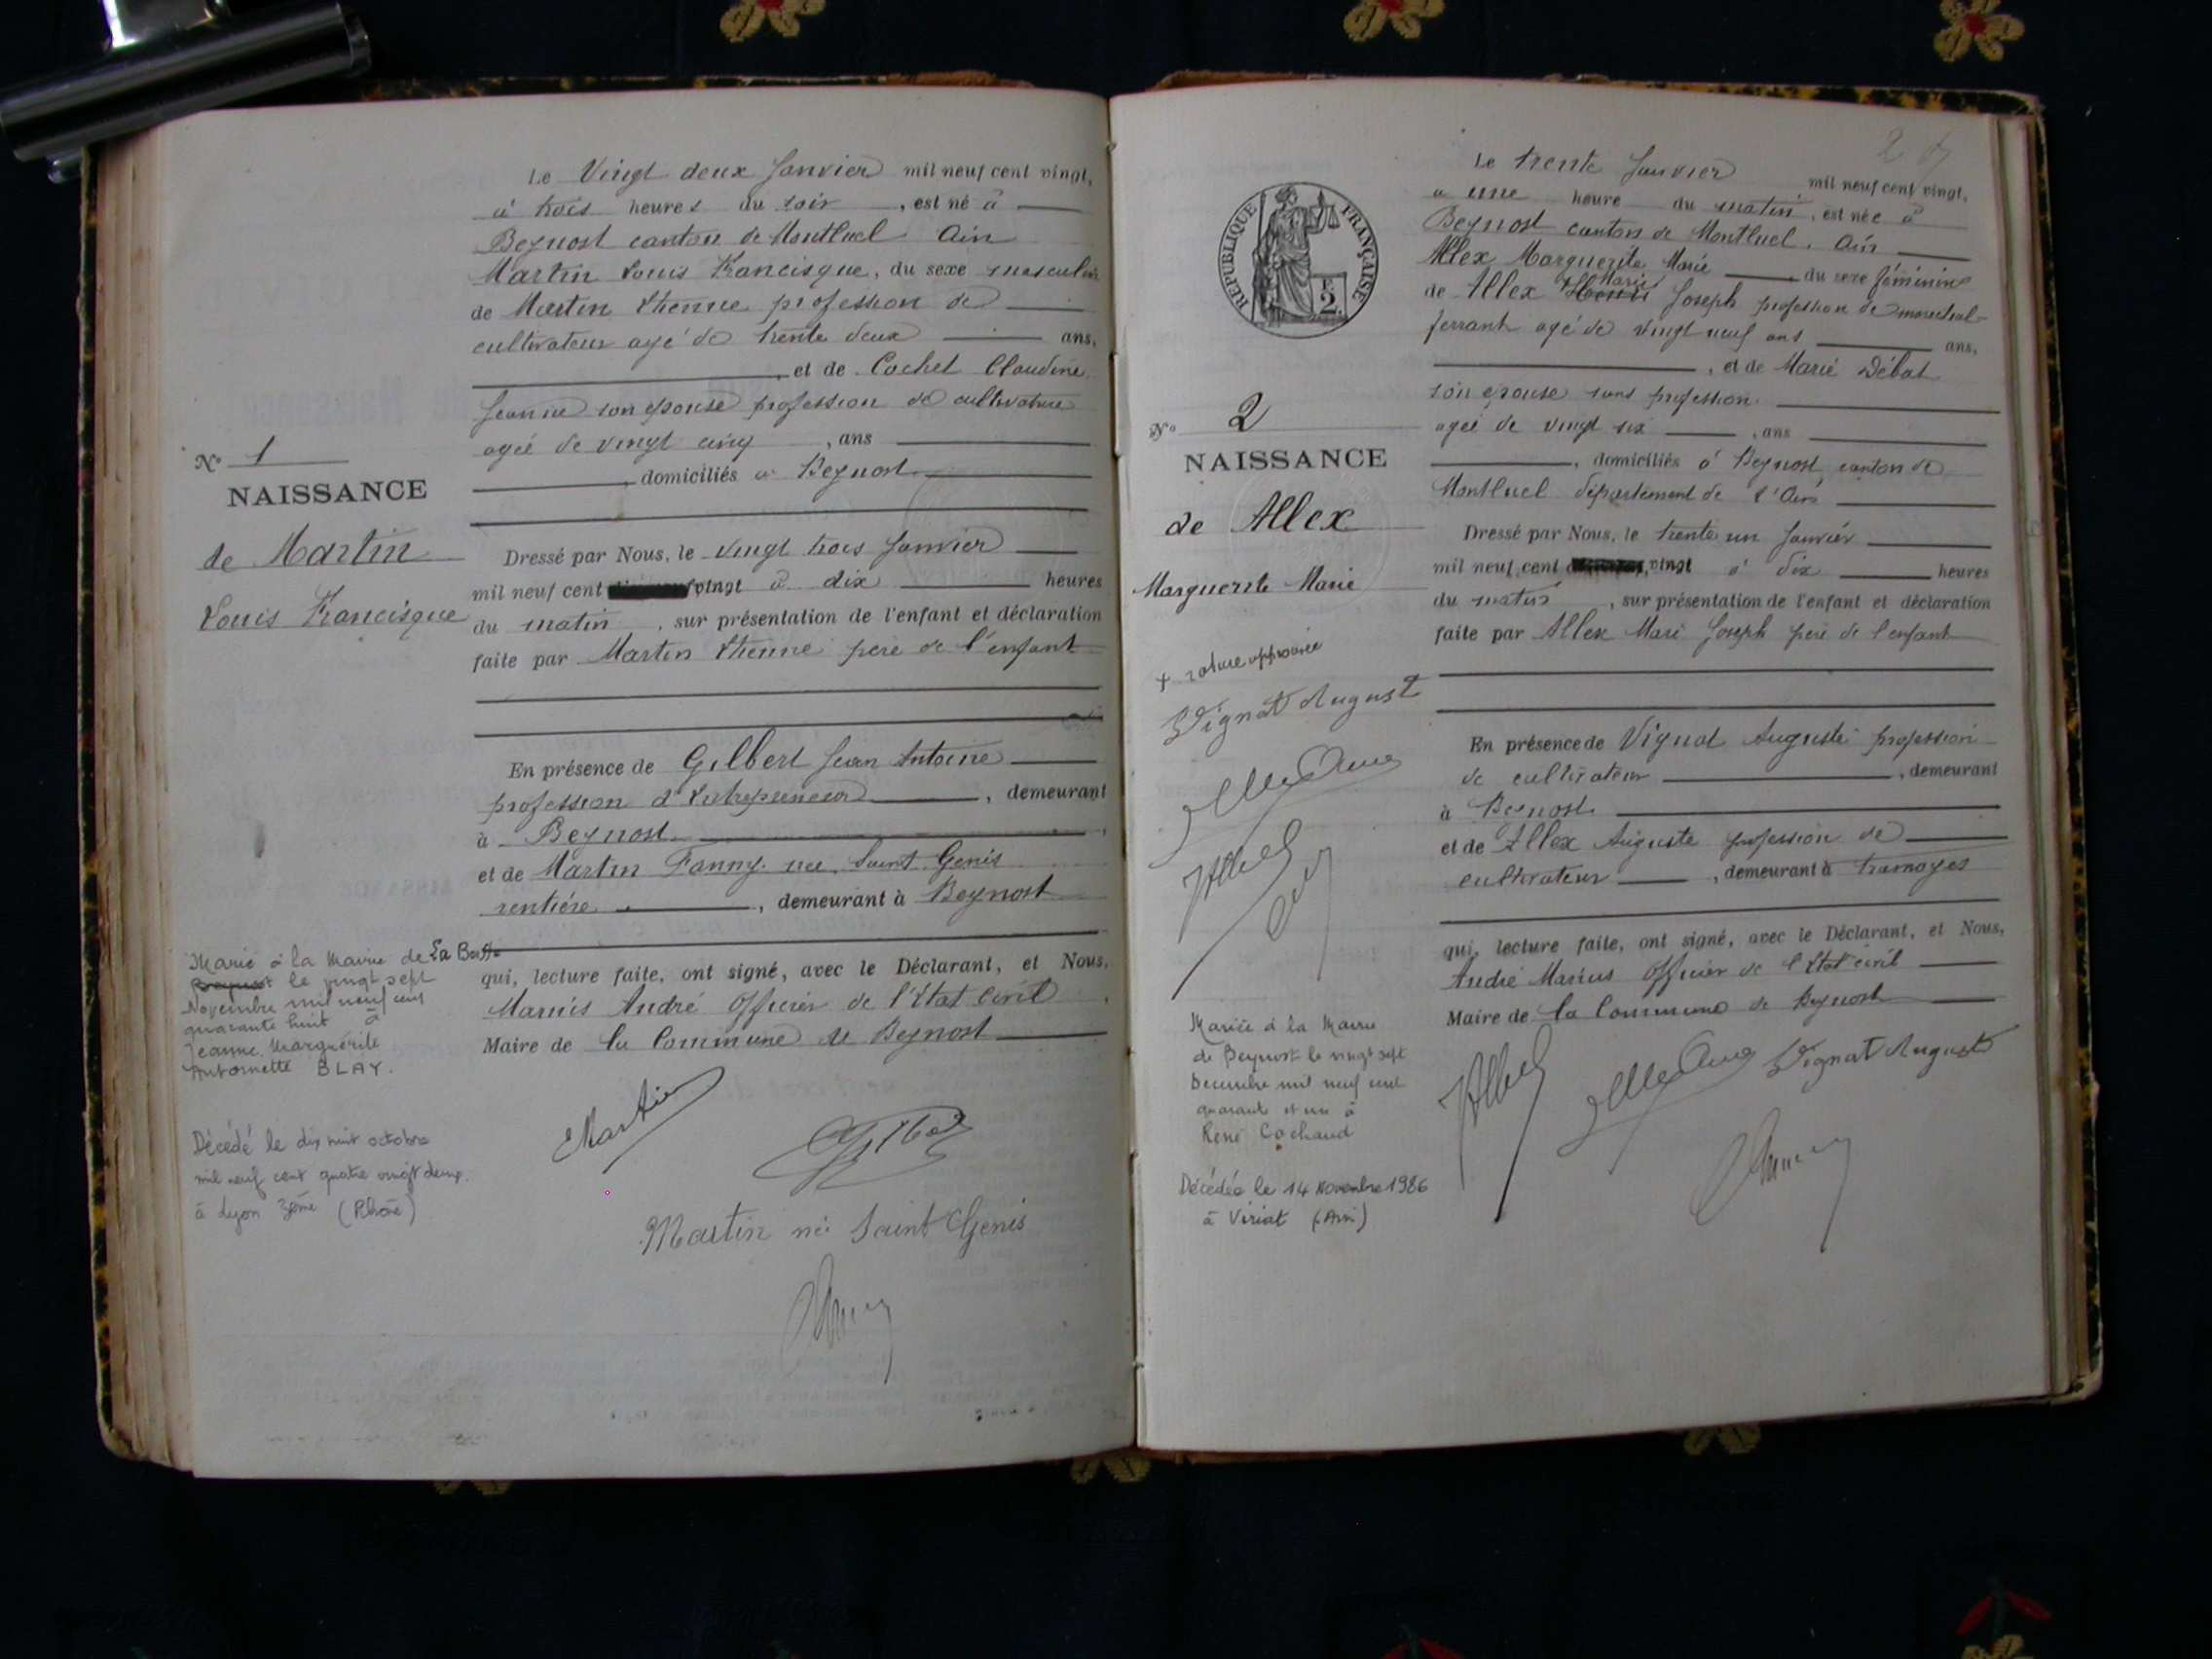 Le Vingt deux Janvier mil neuf cent vingt,
à trois heures du soir, est né à
Beynost canton de Montluel Ain
Martin Louis Francisque, du sexe masculin
de Martin Etienne profession de
cultivateur agé de trente deux ans,
, et de Cochet Claudine
Jeanne son epouse profession de cultivatrice
agée de vingt cinq, ans
, domiciliés à Beynost
Nº 1
NAISSANCE
de Martin
Louis Francisque
Dressé par Nous, le vingt trois Janvier
mil neuf cent vingt à dix heures
du matin, sur présentation de l'enfant et déclaration
faite par Martin Etienne père de l'enfant
En présence de Gilbert Jean Antoine
profession d'Entrepreneur, demeurant
à Beynost
et de Martin Fanny née Saint Genis
rentière, demeurant à Beynost
qui, lecture faite, ont signé, avec le Déclarant, et Nous,
Marius André Officier de l'Etat Civil
Maire de la Commune de Beynost
Marié à la Mairie de La
Beynost le vingt sept
Novembre mil neuf cent
quarante huit à
Jeanne Marguerite
Antoinette BLAY.
Décédé le dix huit octobre
mil neuf cent quatre vingt deux
à Lyon 3ème (Rhône)
Martin
Martin née Saint Genis
Le trente Janvier mil neuf cent vingt,
à une heure du matin, est née à
Beynost canton de Montluel. Ain
Allex Marguerite Marie, du sexe féminin
de Allex Henri Marie Joseph profession de marechal-
ferrant agé de vingt neuf ans ans,
, et de Marie Débat
son epouse sans profession
agée de vingt six, ans
, domiciliés à Beynost canton de
Montluel département de l'Ain
REPUBLIQUE FRANÇAISE
2
Nº 2
NAISSANCE
de Allex
Marguerite Marie
Dressé par Nous, le trente un Janvier
mil neuf cent vingt à dix heures
du matin, sur présentation de l'enfant et déclaration
faite par Allex Marie Joseph père de l'enfant
+ rature approuvée
Vignat August
En présence de Vignat Auguste profession
de cultivateur, demeurant
à Beynost
et de Allex Auguste profession de
cultivateur, demeurant à tramoyes
qui, lecture faite, ont signé, avec le Déclarant, et Nous,
André Marius Officier de l'Etat civil
Maire de la Commune de Beynost
Vignat August
Mariée à la Mairie
de Beynost le vingt sept
Décembre mil neuf cent
quarante et un à
René Cochaud
Décédée le 14 Novembre 1986
à Viriat (Ain)